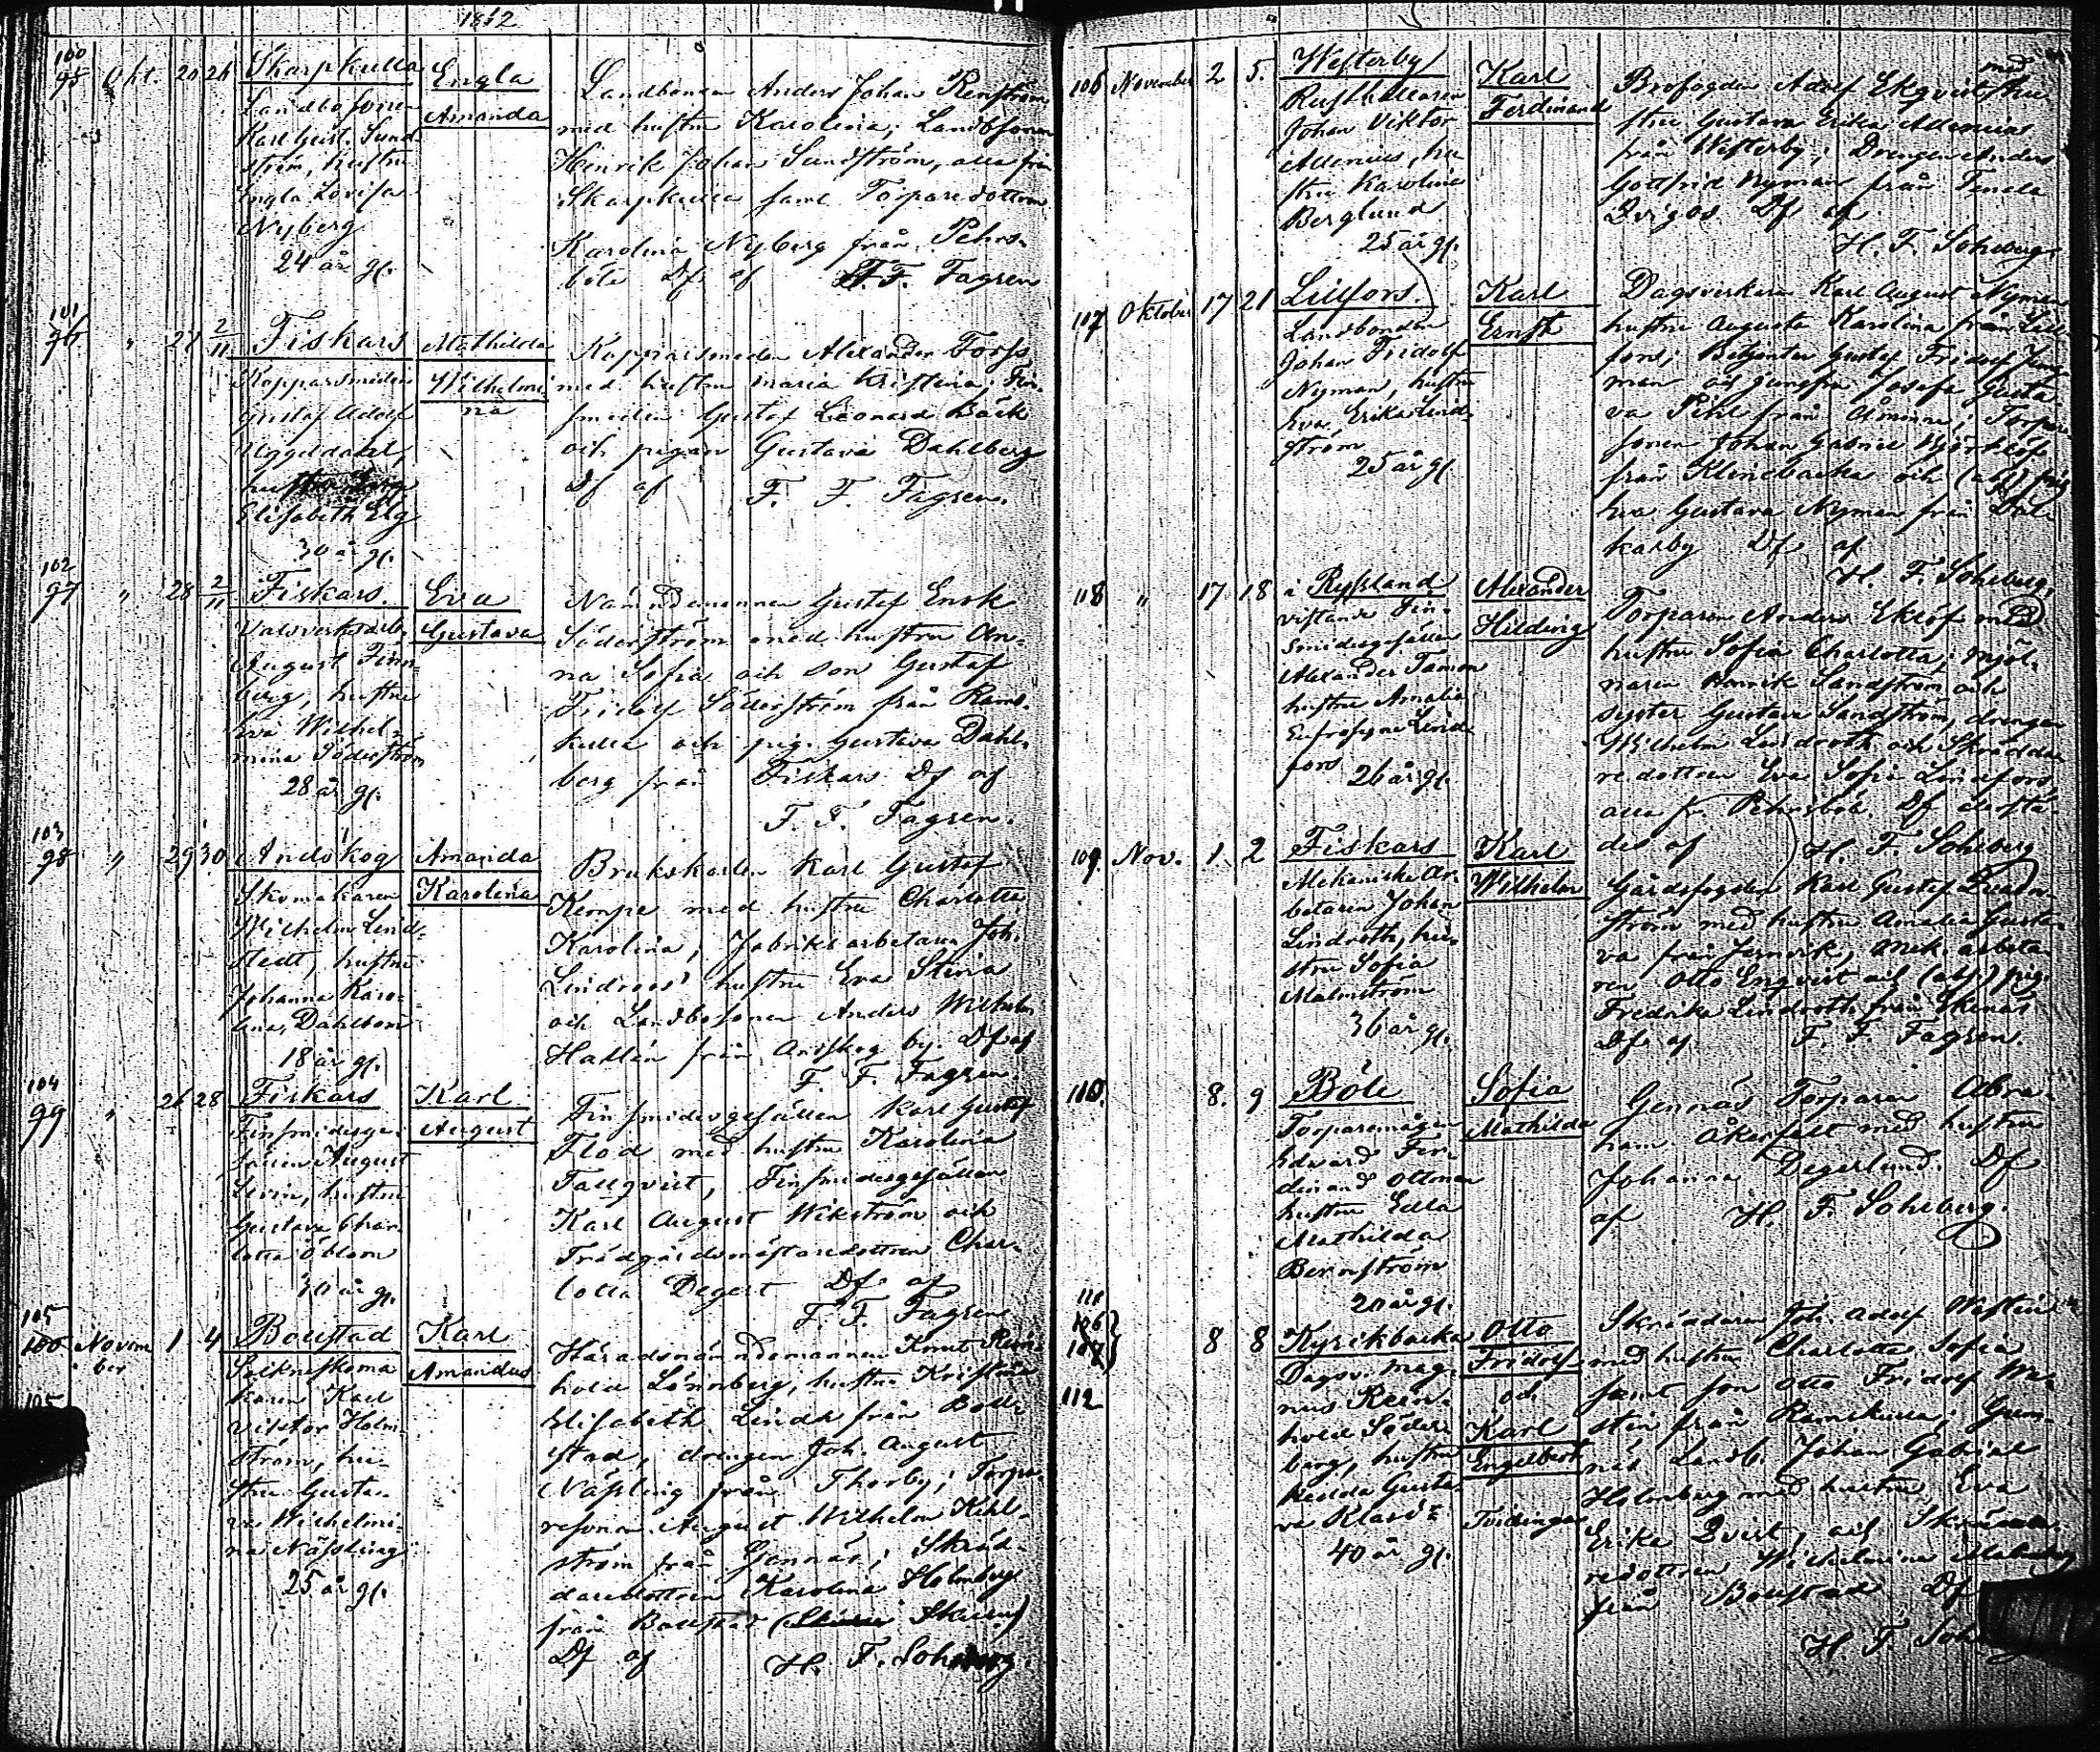 1862
100
95 Okt. 20 26 Skarpkulla Engla
Landbosonen Amanda
Karl Gust. Sund-
ström, hustru
Engla Lovisa
Nyberg
24 år gl.
Landbonden Anders Johan Renström
med hustru Karolina; Landbsonen
Henrik Johan Sundström, alla från
Skarpkulla samt Torparedottren
Karolina Nyberg från Pehrs-
böle Df af F. F. Fagren
101
96 " 27 2/11 Fiskars Mathilda
Kopparsmeden Wilhelmi-
Gustaf Adolf na
Uggeldahl,
hustru
Elisabeth Elg
30 år gl.
Kopparsmeden Alexander Forss
med hustru Maria Kristina; Fin-
smeden Gustaf Leonard Bäck
och pigan Gustava Dahlberg
Df af F. F. Fagren.
102
97 " 28 2/11 Fiskars. Eva
Valsverksarb. Gustava
August Finn-
berg, hustru
Eva Wilhel-
mina Söderström
28 år gl.
Nämndemannen Gustaf Enok
Söderström med hustru An-
na Sofia och son Gustaf
Fridolf Söderström från Rams-
kulla och pig. Gustava Dahl-
berg från Fiskars Df af
F. F. Fagren.
103
98 " 29 30 Andskog Amanda
Skomakaren Karolina
Wilhelm Lind-
stedt, hustru
Johanna Karo-
lina Dahlbom
18 år gl.
Brukskarlen Karl Gustaf
Kempe med hustru Charlotta
Karolina; Fabriksarbetaren Joh.
Lindroos' hustru Eva Stina
och Landbosonen Anders Wilhelm
Hallén från Andskog by. Df af
F. F. Fagren.
104
99 " 26 28 Fiskars Karl
Finsmidesge- August
sällen August
Levin, hustru
Gustava Char-
lotta Öblom
30 år gl.
Finsmidesgesällen Karl Gustaf
Flod med hustru Karolina
Tallqvist, Finsmidesgesällen
Karl August Wikström och
Trädgårdsmästaredottren Char-
lotta Degert Df af
F. F. Fagren
105
100 Novem- 1 4 Bollstad Karl
ber Amandus
karen Karl
Viktor Holm-
ström, hu-
stru Gusta-
va Wilhelmi-
na Näsling
25 år gl.
105
Häradsnämndemannen Knut Rein-
hold Lönnberg, hustru Kristina
Elisabeth Linda från Boll-
stad, drengen Joh. August
Näsling från Thorby; Torpa-
resonen August Wilhelm Kihl-
ström från Gennäs; Skräd-
daredottren Karolina Holmberg
från Bollstad
Df af H. F. Sohlberg.
106 November 2 5. Westerby Karl
Rusthållaren Ferdinand
Johan Viktor
Allenius, hu-
stru Karolina
Berglund
25 år gl.
Brofogden Adolf Ekqvist med hu-
stru Gustava Erika Allenius
från Westerby; Drengen Anders
Gottfrid Nyman från Tenala
Df af
H. F. Sohlberg.
107 Oktober 17 21 Lillfors. Karl
Landbonden Ernst
Johan Fridolf
Nyman, hustru
Eva Erika Lind-
ström
25 år gl.
Dagsverkaren Karl August Nyman
hustru Augusta Karolina från Lill-
fors; Betjenten Gustaf Fridolf
man och jungfru Josefa Gusta-
va Pihl från Åminne; Torpare-
sonen Johan Gabriel Björklöf
från Klinkbacka och
Eva Gustava Nyman från Dal-
karby Df af
H. F. Sohlberg,
108 " 17 18 i Ryssland Alexander
vistande Fin- Hilding
smidesgesällen
Alexander Tamon
hustru Amalia
Eufrosyne Lind-
fors 26 år gl.
Torparen Anders Eklöf med
hustru Sofia Charlotta; Mjöl-
naren Henrik Sandström och
syster Gustava Sandström, drengen
Wilhelm Lindroth och Skrädda-
redottren Eva Sofia Lindfors,
alla fr. Pehrsböle. Df derstä-
des af H. F. Sohlberg
109. Nov. 1 2 Fiskars Karl
Mekaniske Ar- Wilhelm
betaren Johan
Lindroth, hu-
stru Sofia
Malmström
36 år gl.
Gårdsfogden Karl Gustaf
ström med hustru Amalia Gusta-
va från Jernvik, mek. arbeta-
ren Otto Engvist och pig.
Fredrika Lindroth från Skenäs
Df af F. F. Fagren.
110. 8. 9 Böle Sofia
Torparemågen Mathilda
Edvard Fer-
dinand Ottman
hustru Edla
Mathilda
Bernström
20 år gl.
Gennäs Torparen Abra-
ham Åkerfelt med hustru
Johanna Degerlund. Df
af H. F. Sohlberg.
111
106
107 8 8 Kyrkbacka Otto
Dagsv. Mag- Fridolf
112 nus Rein- och
hold Söder- Karl
berg, hustru Engelbert
Gusta-
va Tvillingar
40 år gl.
Skräddaren Joh. Adolf Westin
med hustru Charlotta Sofia
samt son Otto Fridolf We-
stin från Ramskulla; Gen-
näs Landb. Johan Gabriel
Holmberg med hustru Eva
Erika Qvist, och Skrädda-
redottren Wilhelmina
från Bollstad Df
H. F. Soh